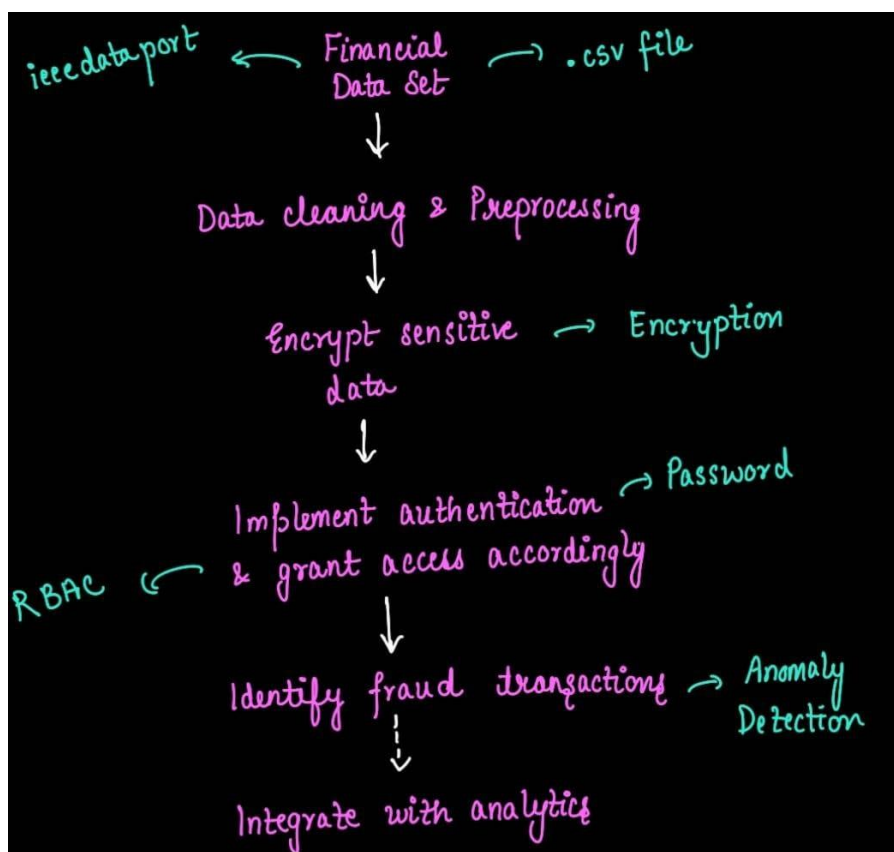 ieeedataport
Financial
Data Set
.csv file
Data cleaning & Preprocessing
Encrypt sensitive
data
Encryption
Implement authentication
& grant access accordingly
Password
RBAC
Identify fraud transactions
Anomaly
Detection
Integrate with analytics